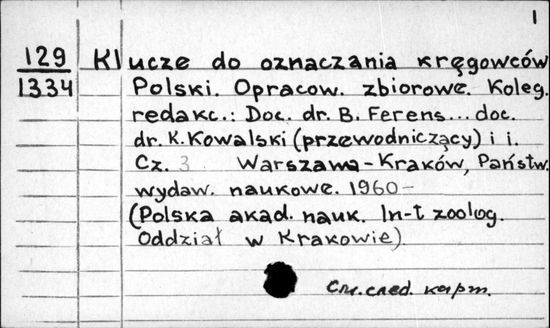 1
129 Klucze do oznaczania kręgowców
1334 Polski. Opracow. zbiorowe. Koleg.
redakc.: Doc. dr. B. Ferens... doc.
dr. K. Kowalski (przewodniczący) i i.
Cz. 3 Warszawa-Kraków, Państw.
wydaw. naukowe. 1960-
(Polska akad. nauk. In-t zoolog.
Oddział w Krakowie).
См. след. карт.